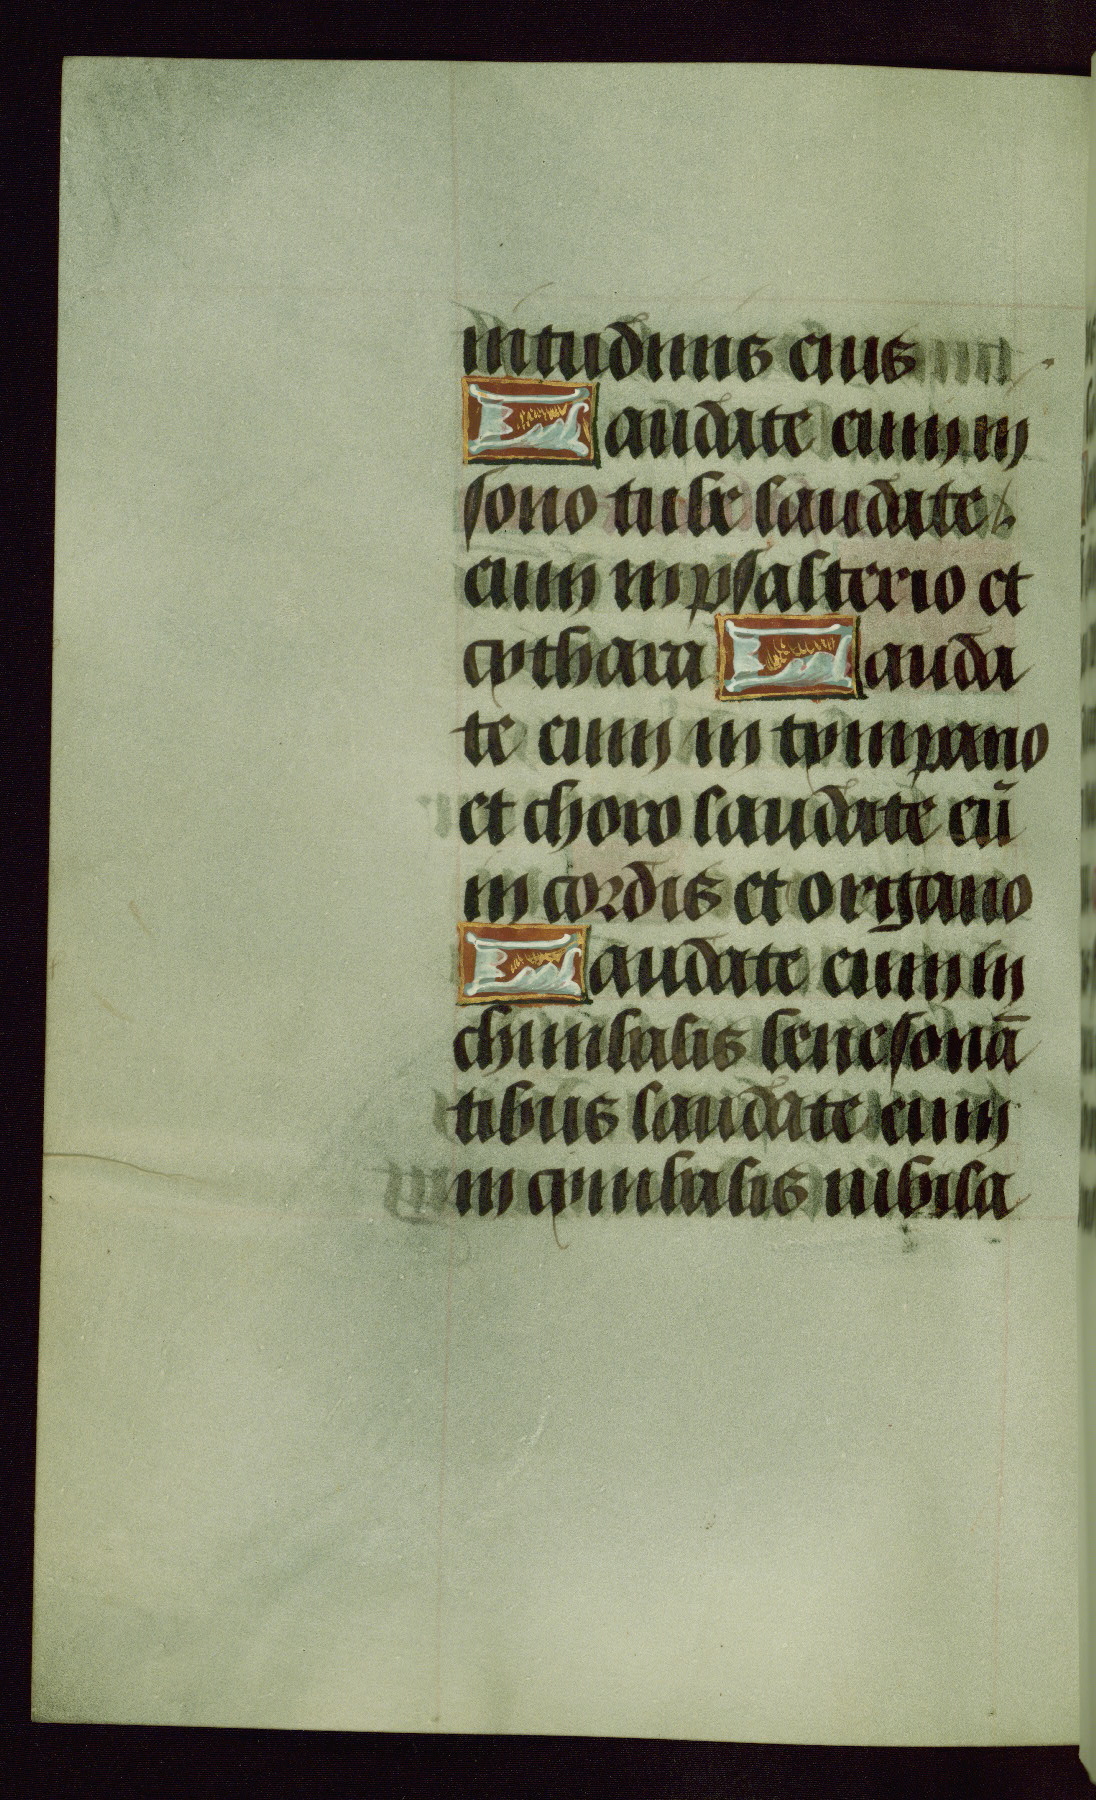 nitudinis eius
Laudate eum in
sono tube laudate
eum in psalterio et
cythara Lauda
te eum in tympano
et choro laudate eū
in cordis et organo
Laudate eum in
chimbalis benesonā
tibus laudate eum
in cymbalis iubila